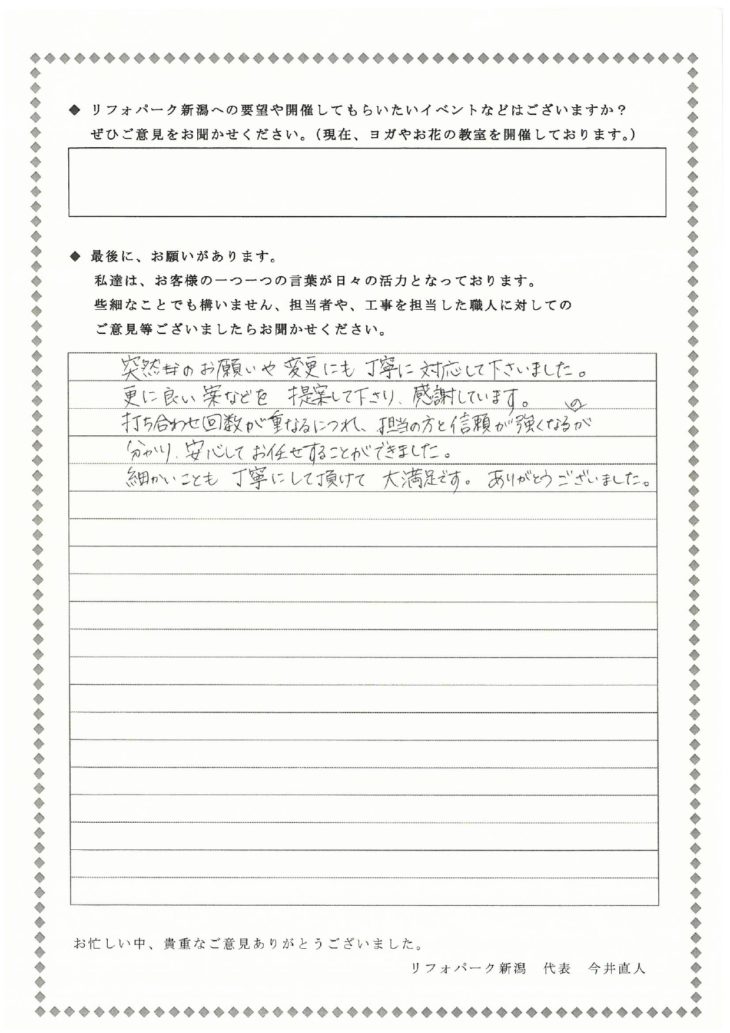 ◆ リフォパーク新潟への要望や開催してもらいたいイベントなどはございますか？
ぜひご意見をお聞かせください。（現在、ヨガやお花の教室を開催しております。）
◆ 最後に、お願いがあります。
私達は、お客様の一つ一つの言葉が日々の活力となっております。
些細なことでも構いません、担当者や、工事を担当した職人に対しての
ご意見等ございましたらお聞かせください。
突然のお願いや変更にも丁寧に対応して下さいました。
更に良い案などを提案して下さり、感謝しています。
打ち合わせ回数が重なるにつれ、担当の方と信頼が強くなるのが
分かり、安心してお任せすることができました。
細かいことも丁寧にして頂けて大満足です。ありがとうございました。
お忙しい中、貴重なご意見ありがとうございました。
リフォパーク新潟　代表　今井直人